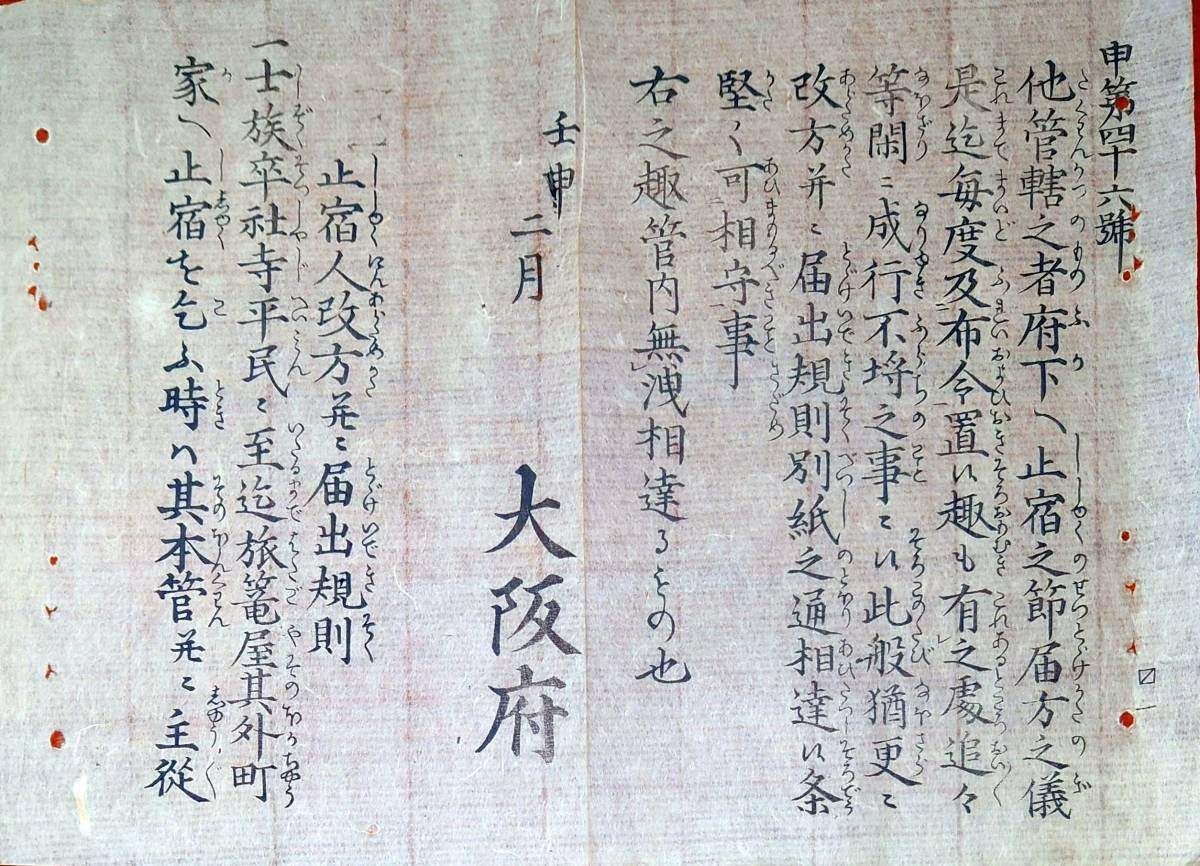 申第四十六號
他管轄之者府下ヘ止宿之節届方之儀
是迄毎度及布令置候趣も有之處追々
等閑ニ成行不埒之事ニ候此般猶更ニ
改方并ニ届出規則別紙之通相達候条
堅く可相守事
右之趣管内無洩相達るもの也
壬申二月
大阪府
止宿人改方并ニ届出規則
一士族卒社寺平民ニ至迄旅篭屋其外町
家ヘ止宿を乞ふ時ハ其本管并ニ主従